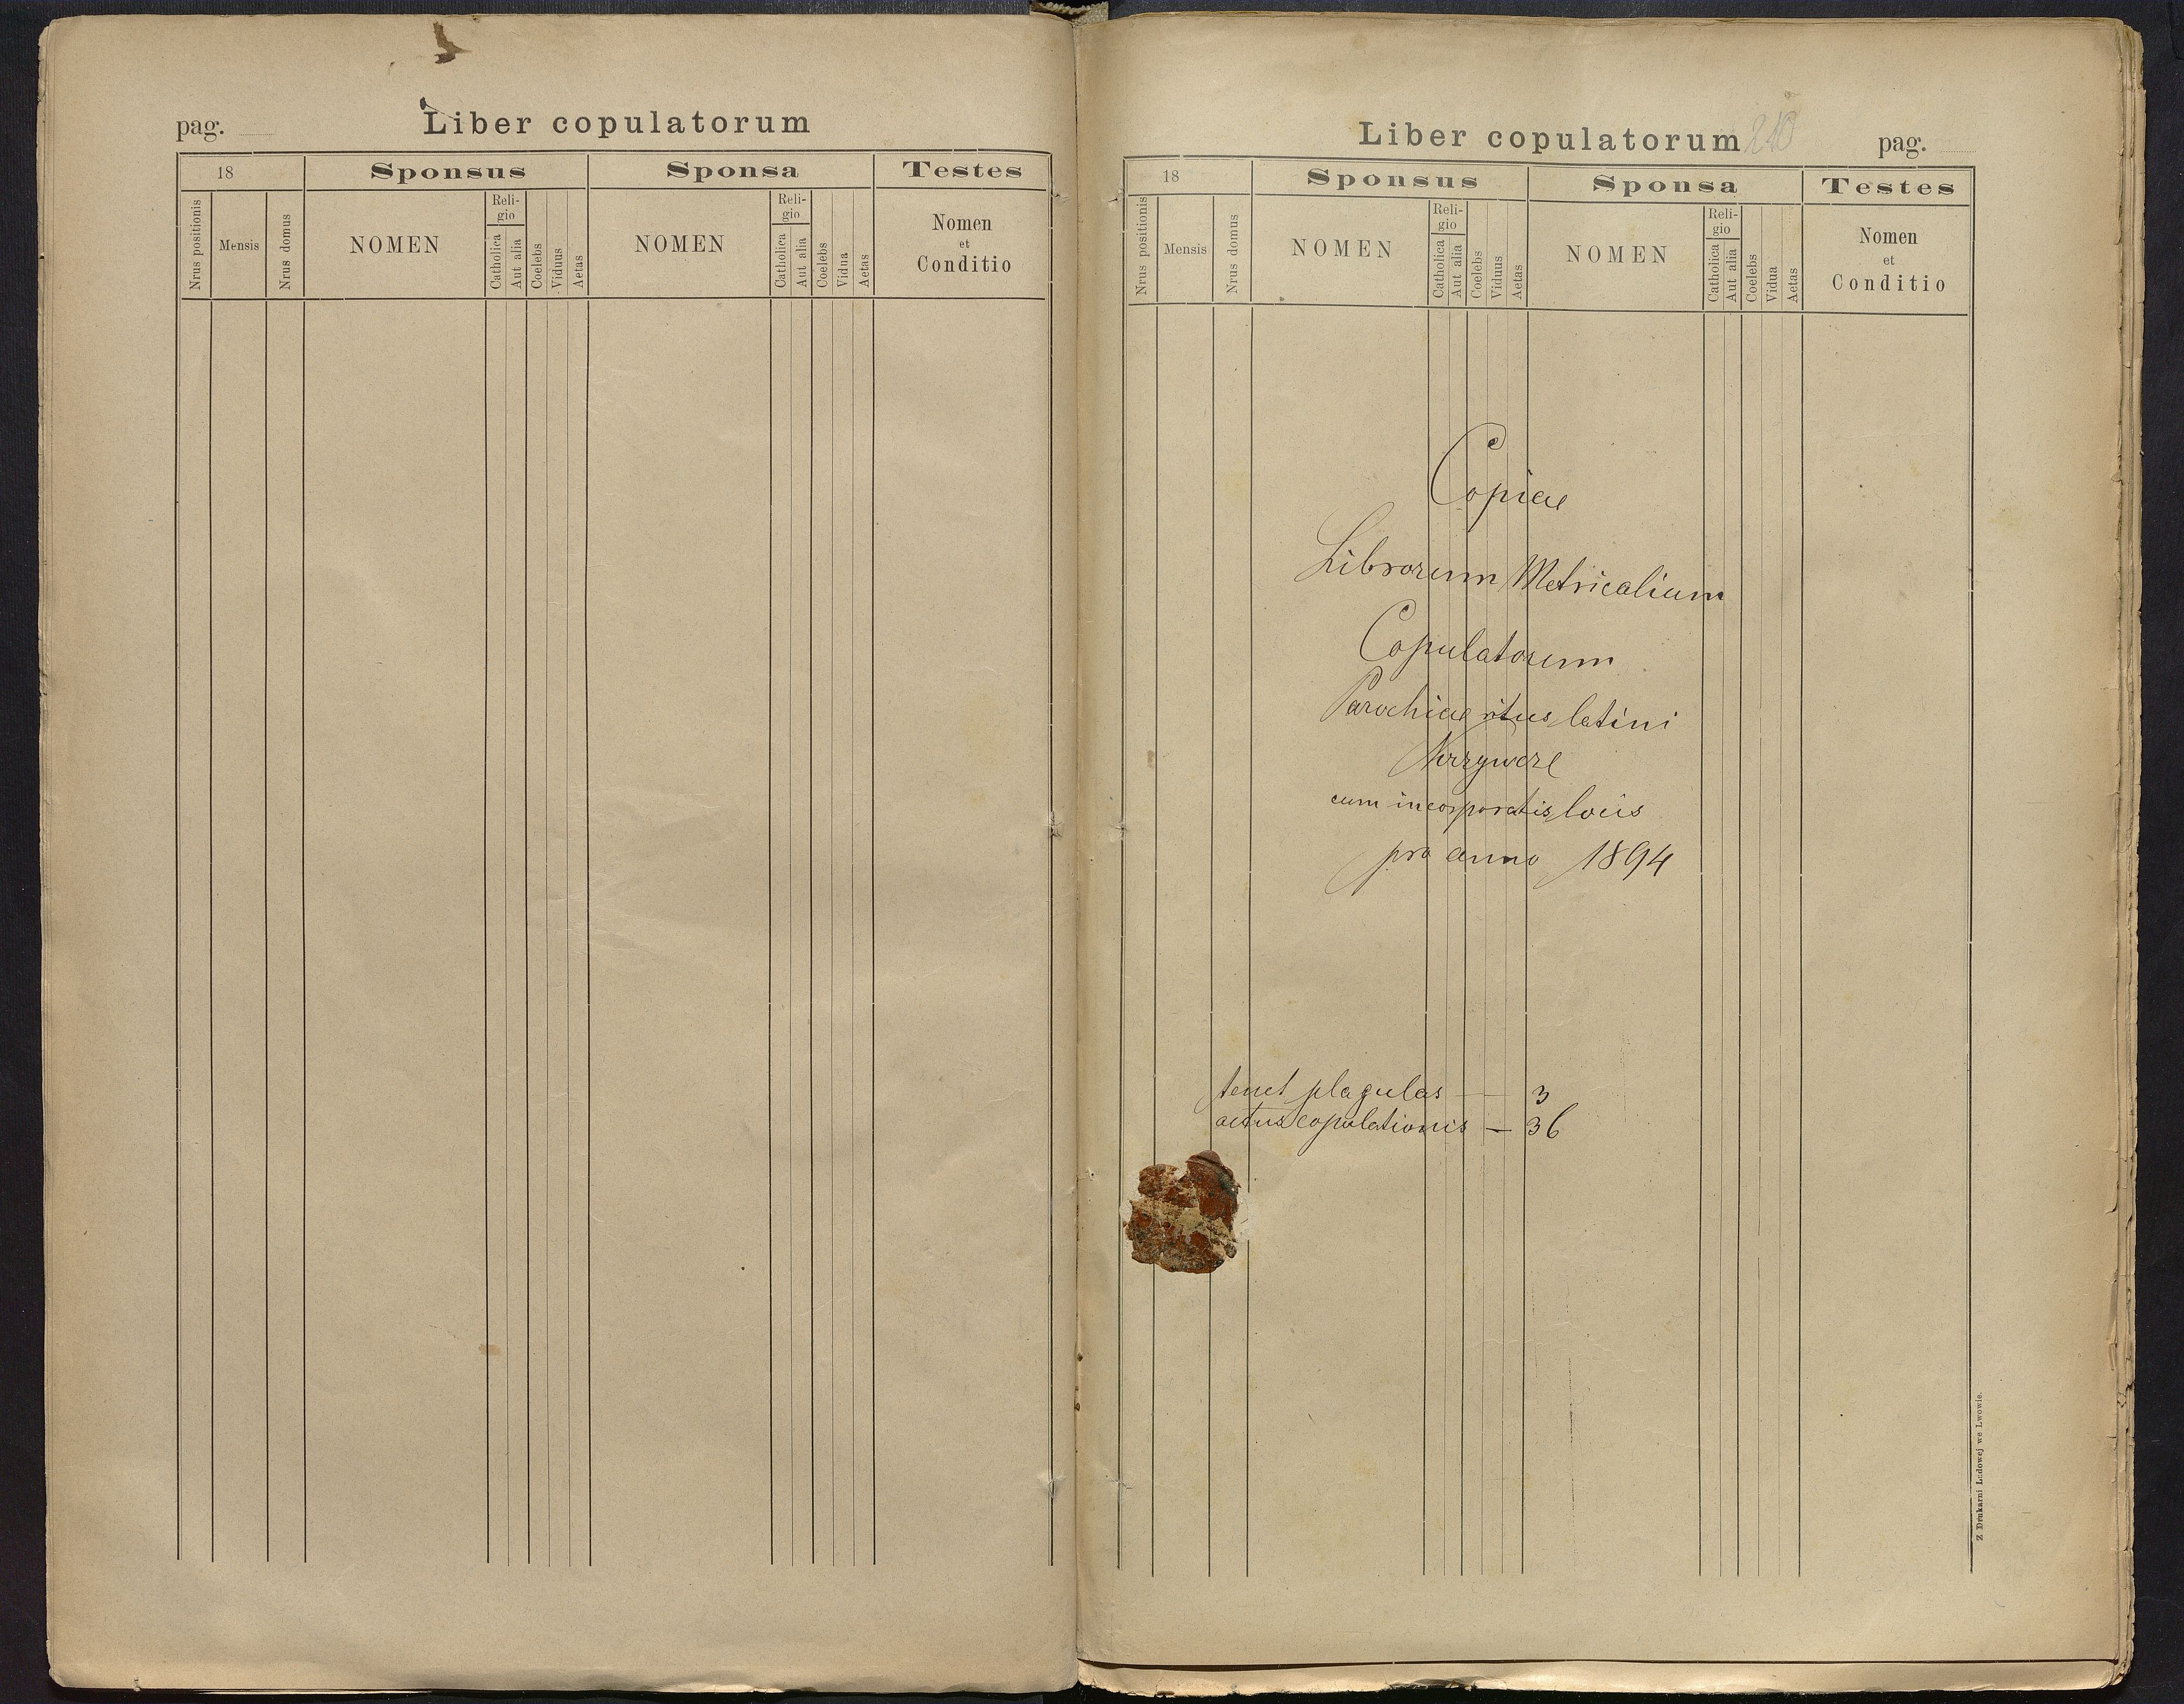 pag.
Liber copulatorum
18
Sponsus
Sponsa
Testes
Nrus positionis
Mensis
Nrus domus
NOMEN
Reli-
gio
Catholica
Aut alia
Coelebs
Viduus
Aetas
NOMEN
Reli-
gio
Catholica
Aut alia
Coelebs
Vidua
Aetas
Nomen
et
Conditio
Liber copulatorum
210
pag.
18
Sponsus
Sponsa
Testes
Nrus positionis
Mensis
Nrus domus
NOMEN
Reli-
gio
Catholica
Aut alia
Coelebs
Viduus
Aetas
NOMEN
Reli-
gio
Catholica
Aut alia
Coelebs
Vidua
Aetas
Nomen
et
Conditio
Copiae
Librorum Metricalium
Copulatorum
Parochiae ritus latini
cum incorporatis locis
pro anno 1894
tenet plagulas — 3
actus copulationis — 36
Z Drukarni Ludowej we Lwowie.